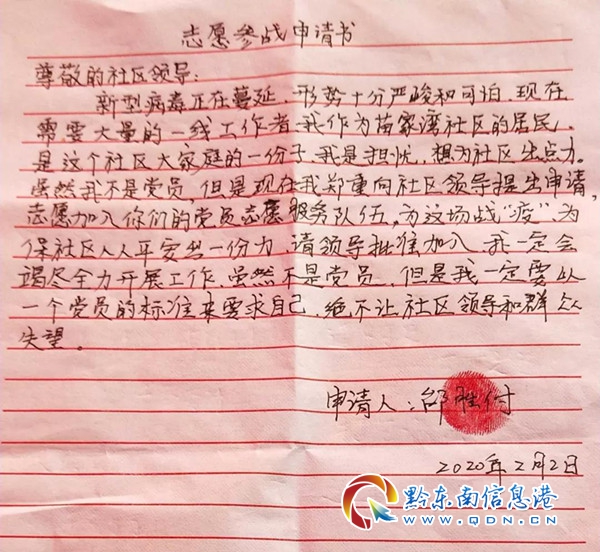 志愿参战申请书
尊敬的社区领导:
新型病毒正在蔓延,形势十分严峻和可怕.现在
需要大量的一线工作者.我作为苗家湾社区的居民,
是这个社区大家庭的一份子.我是担忧,想为社区出点力.
虽然我不是党员,但是现在我郑重向社区领导提出申请,
志愿加入你们的党员志愿服务队伍,为这场战"疫",为
保社区人人平安出一份力,请领导批准加入.我一定会
竭尽全力开展工作.虽然不是党员,但是我一定要以
一个党员的标准来要求自己.绝不让社区领导和群众
失望。
申请人:邰胜付
2020年2月2日
黔东南信息港
WWW.QDN.CN